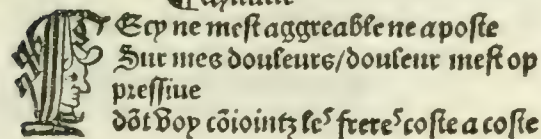 CEcy ne mest aggreable ne a poste
Sur mes douleurs/douleur mest op
pressiue
dõt voy cõiointz les freres coste a coste